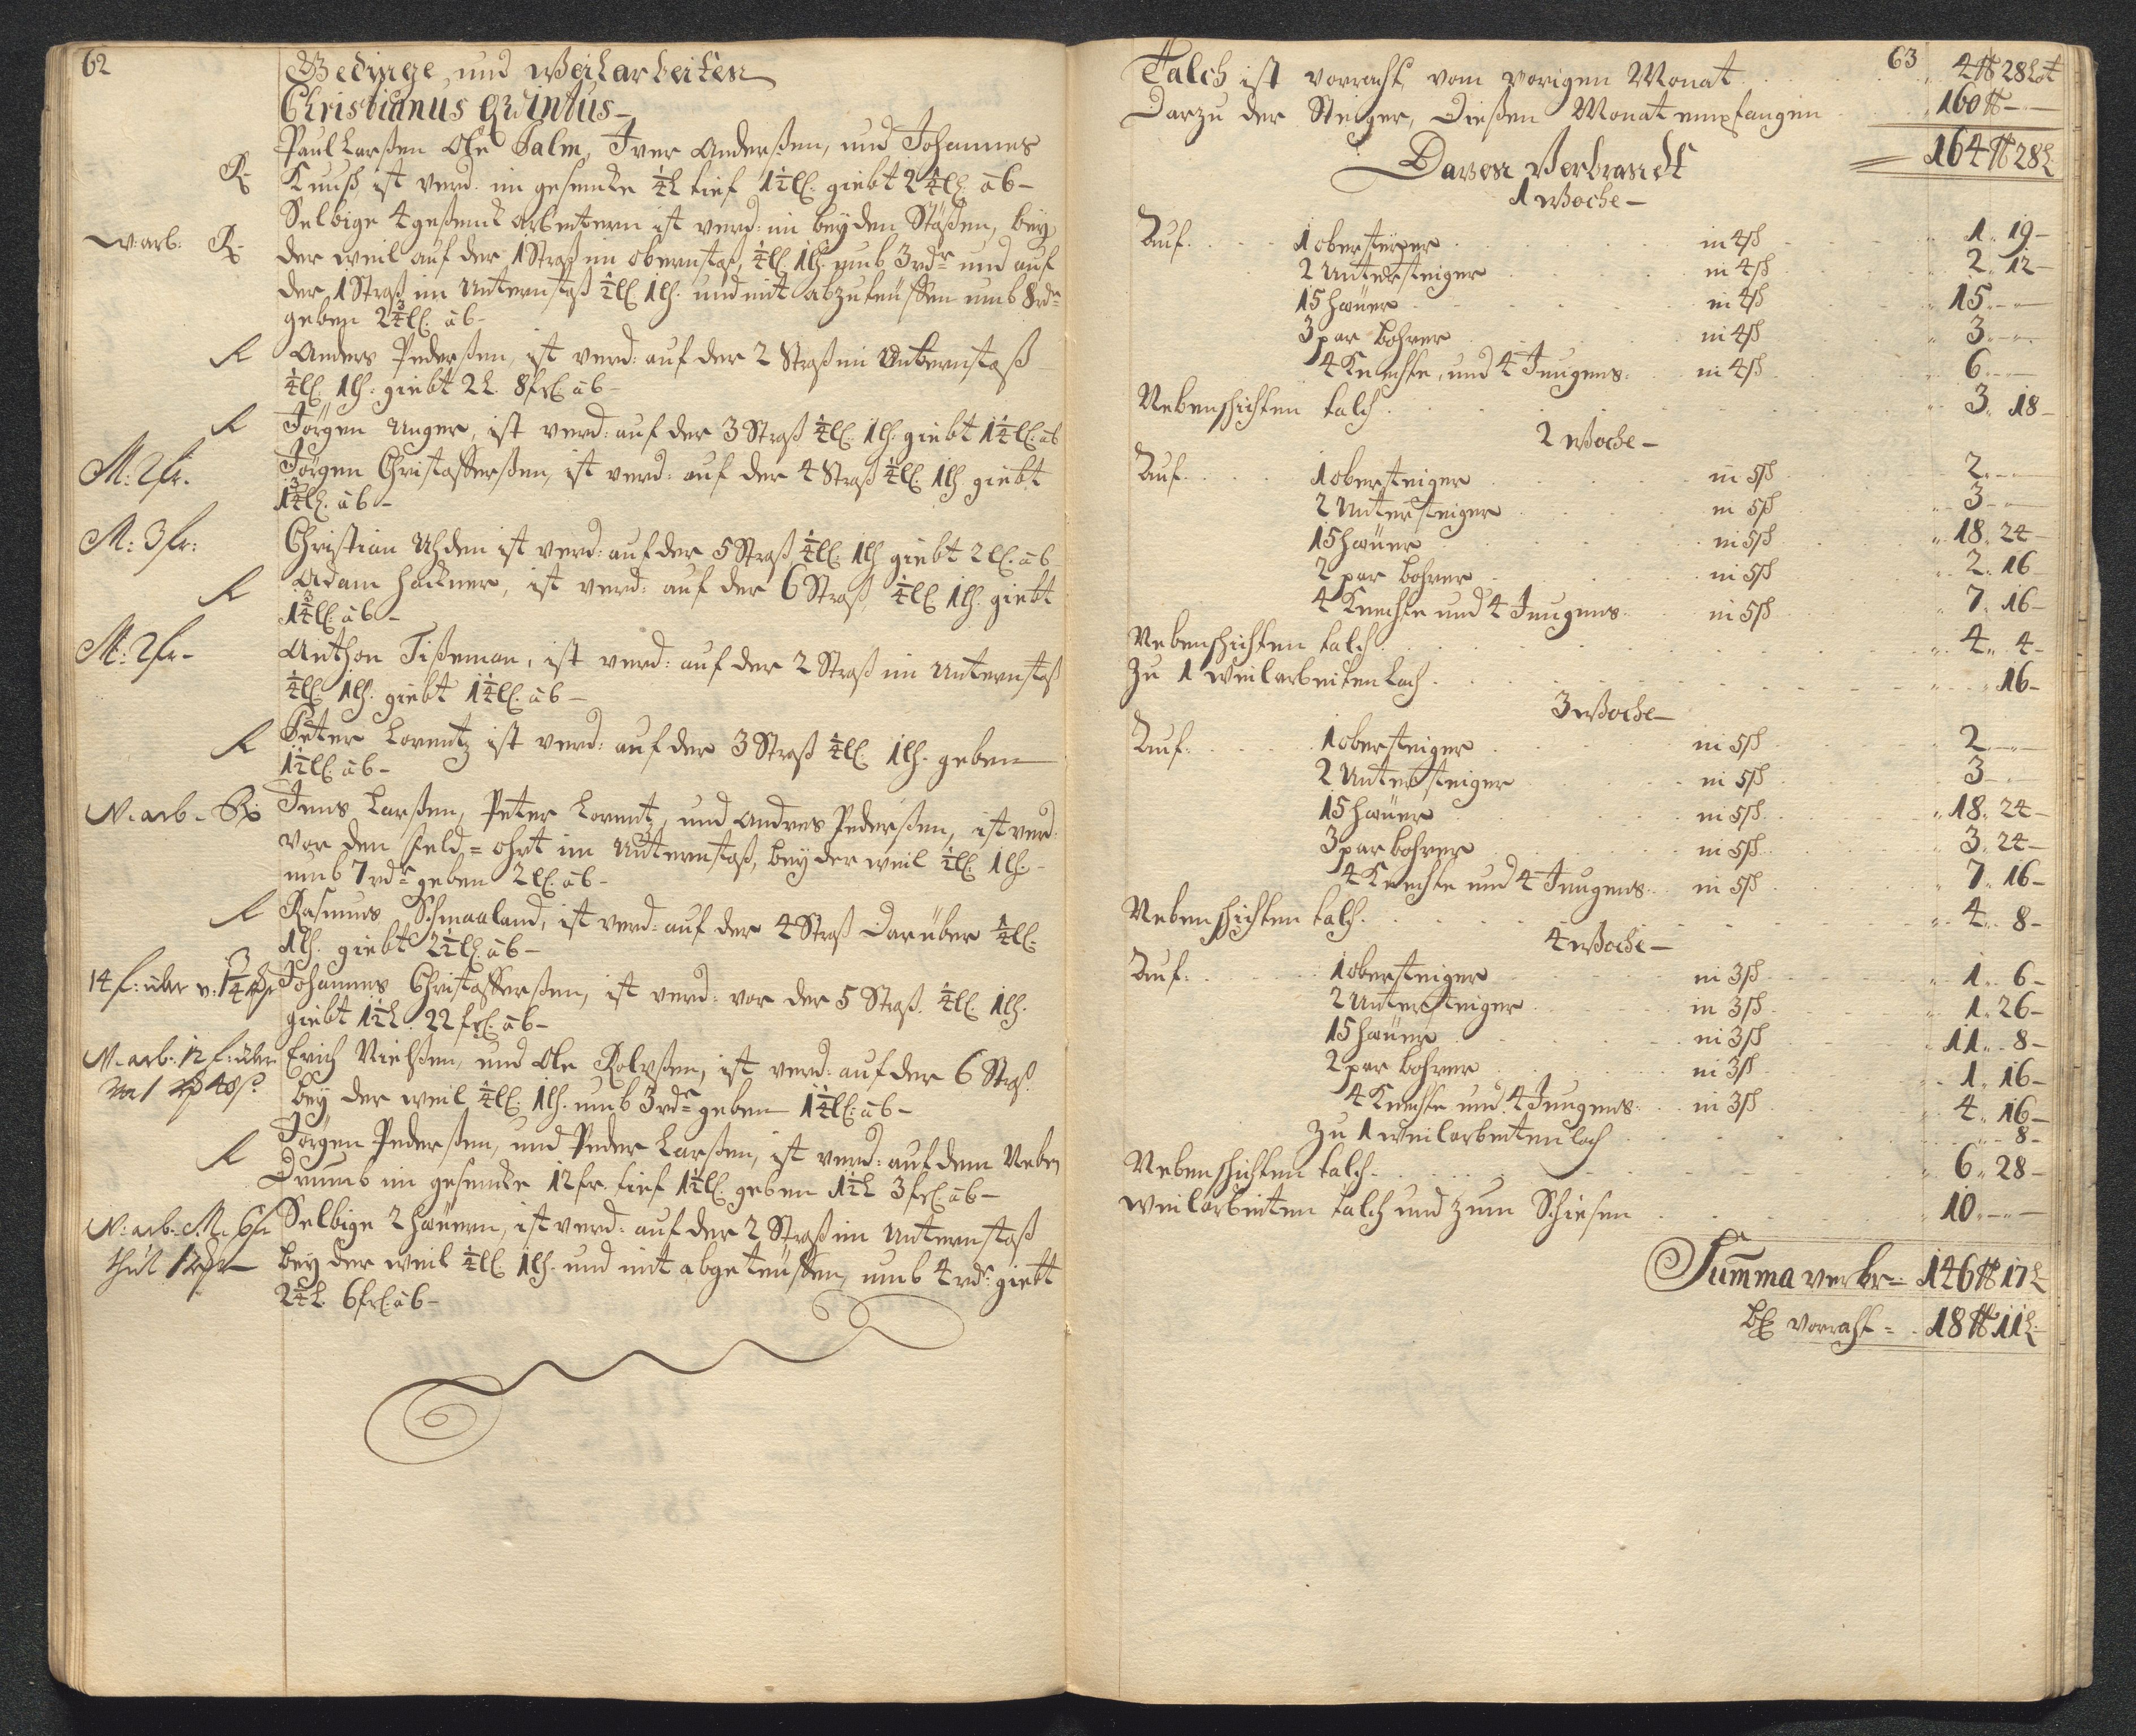 62
Gedinge und Weilarbeiten
Christianus Quintus-
Paul Larßen Ole Palm, Iver Anderßen, und Johannes
R- Knuß ist verd. im gesencke ¼L tief 1½ll. giebt 2¼ll. ab-
Selbige 4 gesenk arbeitern ist verd: im beyden Stößen, bey
W:arb: R- der weil auf der 1 Straß im obernstoß, ¼ll. 1lh. umb 3rdr und auf
der 1 Straß im Unternstoß ½ll. 1lh. und mit abzuteuffen umb 8rdr
geben 2¾ll. ab-
R Anders Pederßen, ist verd: auf der 2 Straß im Unternstoß
¼ll. 1lh. giebt 2L. 8frl. ab-
R Jörgen Unger, ist verd: auf der 3 Straß ¼ll. 1lh. giebt 1¼ll. ab
M: 2fr. Jörgen Christofferßen, ist verd: auf der 4 Straß ¼ll. 1lh. giebt
1¾ll. ab-
M: 3fr: Christian Uhden ist verd: auf der 5 Straß ¼ll. 1lh giebt 2ll. ab
R Adam Hackner, ist verd: auf der 6 Straß, ¼ll. 1lh. giebt
1¾ll. ab-
M: 2fr- Anthon Tißeman, ist verd: auf der 2 Straß im Unternstoß
¼ll. 1lh. giebt 1¼ll. ab-
R Peter Lorentz ist verd: auf der 3 Straß ¼ll. 1lh. geben
1½ll. ab-
W:arb- R Jens Larßen, Peter Lorentz, und Andres Pederßen, ist verd:
vor den Feld=ohrt im Unternstoß, bey der weil ½ll. 1lh.-
umb 7rdr geben 2ll. ab-
R Rasmus Schmaaland, ist verd: auf der 4 Straß Darüber ¼ll.
1lh. giebt 2½ll. ab-
14 f: über Johannes Christofferßen, ist verd: vor der 5 Straß. ¼ll. 1lh.
giebt 1½L. 22frl. ab-
W:arb: 12 f: über Erich Nielßen, und Ole Rolvßen, ist verd: auf der 6 Straß.
bey der weil ¼ll. 1lh. umb 3rdr geben 1¼ll. ab-
Jörgen Pederßen, und Peder Larßen, ist verd: auf dem Neben
R Trumb im gesencke 12fr. tief 1½ll. geben 1½L 3frl. ab-
W:arb: M- 6fr Selbige 2 Häuern, ist verd: auf der 2 Straß im Unternstoß
bey der weil ¼ll. 1lh. und mit abgeteuffen, umb 4rdr giebt
2¼L. 6frl. ab-
63
Talch ist vorrahts vom vorigen Monat 4 ℔ 28 Lot
Darzu der Steiger, Dießen Monat empfangen 160 ℔ -
164 ℔ 28 L
Davon Verbrandt
1 Woche-
Auf. 1 obersteiger in 4 sh 1 " 19-
2 Untersteiger in 4 sh 2 " 12-
15 häuer in 4 sh 15 " -
3 par bohrer in 4 sh 3 " -
4 Knechte, und 4 Jungens. in 4 sh 6 " -
Nebenschichten talch 3 " 18-
2 Woche-
Auf. 1 obersteiger in 5 sh 2 " -
2 Untersteiger in 5 sh 3 " -
15 häuer in 5 sh 18 " 24-
2 par bohrer in 5 sh 2 " 16
4 Knechte und 4 Jungens in 5 sh 7 " 16-
Nebenschichten talch 4 " 4-
Zu 1 weilarbeiten Loch 16-
3 Woche-
Auf. 1 obersteiger in 5 sh 2 " -
2 Untersteiger in 5 sh 3 " -
15 häuer in 5 sh 18 " 24-
3 par bohrer in 5 sh 3 " 24-
4 Knechte und 4 Jungens in 5 sh 7 " 16-
Nebenschichten talch 4 " 8-
4 Woche-
Auf. 1 obersteiger in 3 sh 1 " 6-
2 Untersteiger in 3 sh 1 " 26-
15 häuer in 3 sh 11 " 8-
2 par bohrer in 3 sh 1 " 16-
4 Knechte und 4 Jungens in 3 sh 4 " 16-
Zu 1 weilarbeiten loch 8-
Nebenschichten talch 6 " 28-
weilarbeiten talch und zum Schiesen 10 " -
Summa verbr= 146 ℔ 17 L
vorraht= 18 ℔ 11 L